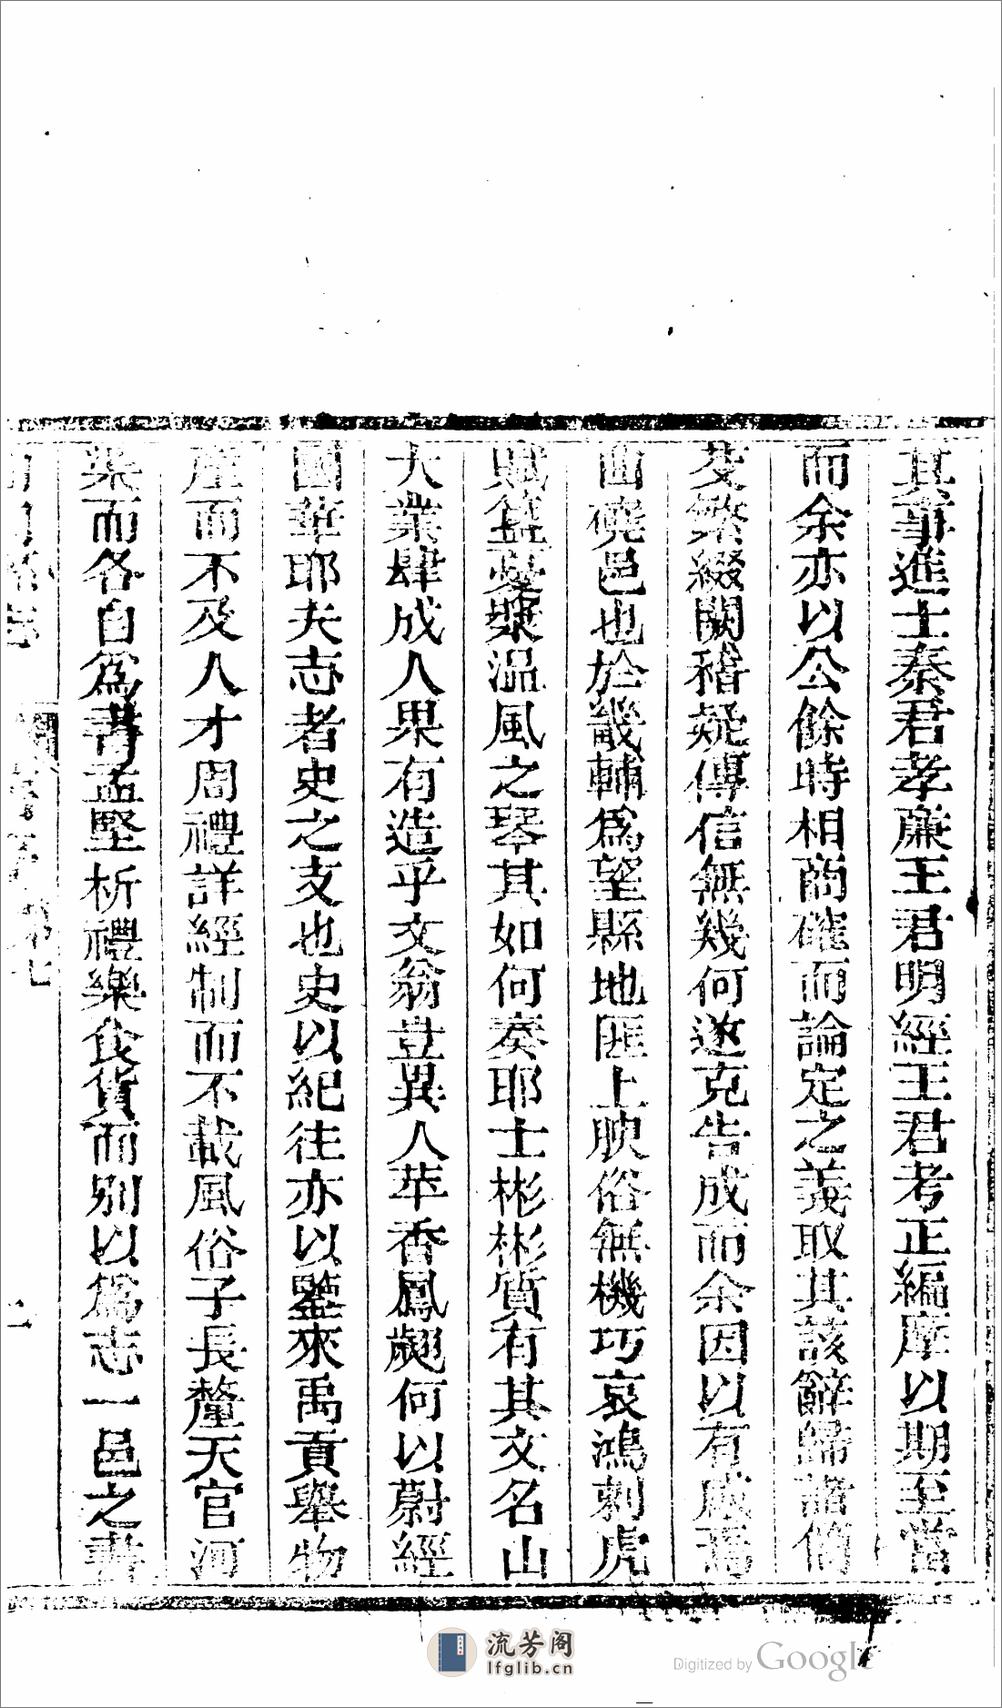 其事進士秦君孝廉王君明經王君考正編摩以期至當
而余亦以公餘時相商確而論定之義取其該辭歸諸簡
芟繁綴闕稽疑傳信無幾何遂克告成而余因以有感焉
曲堯邑也於畿輔爲望縣地匪上腴俗無機巧哀鴻刺虎
賦筳憂槳温風之琴其如何奏耶士彬彬質有其文名山
大業肆成人果有造乎文翁豈異人莘香鳳翽何以蔚經
國華耶夫志者史之支也史以紀往亦以鑒來禹貢舉物
產而不及人才周禮詳經制而不載風俗子長釐天官河
渠而各自爲書孟堅析禮樂食貨而別以爲志一邑之書
流芳阁
lfglib.cn
Digitized by Google